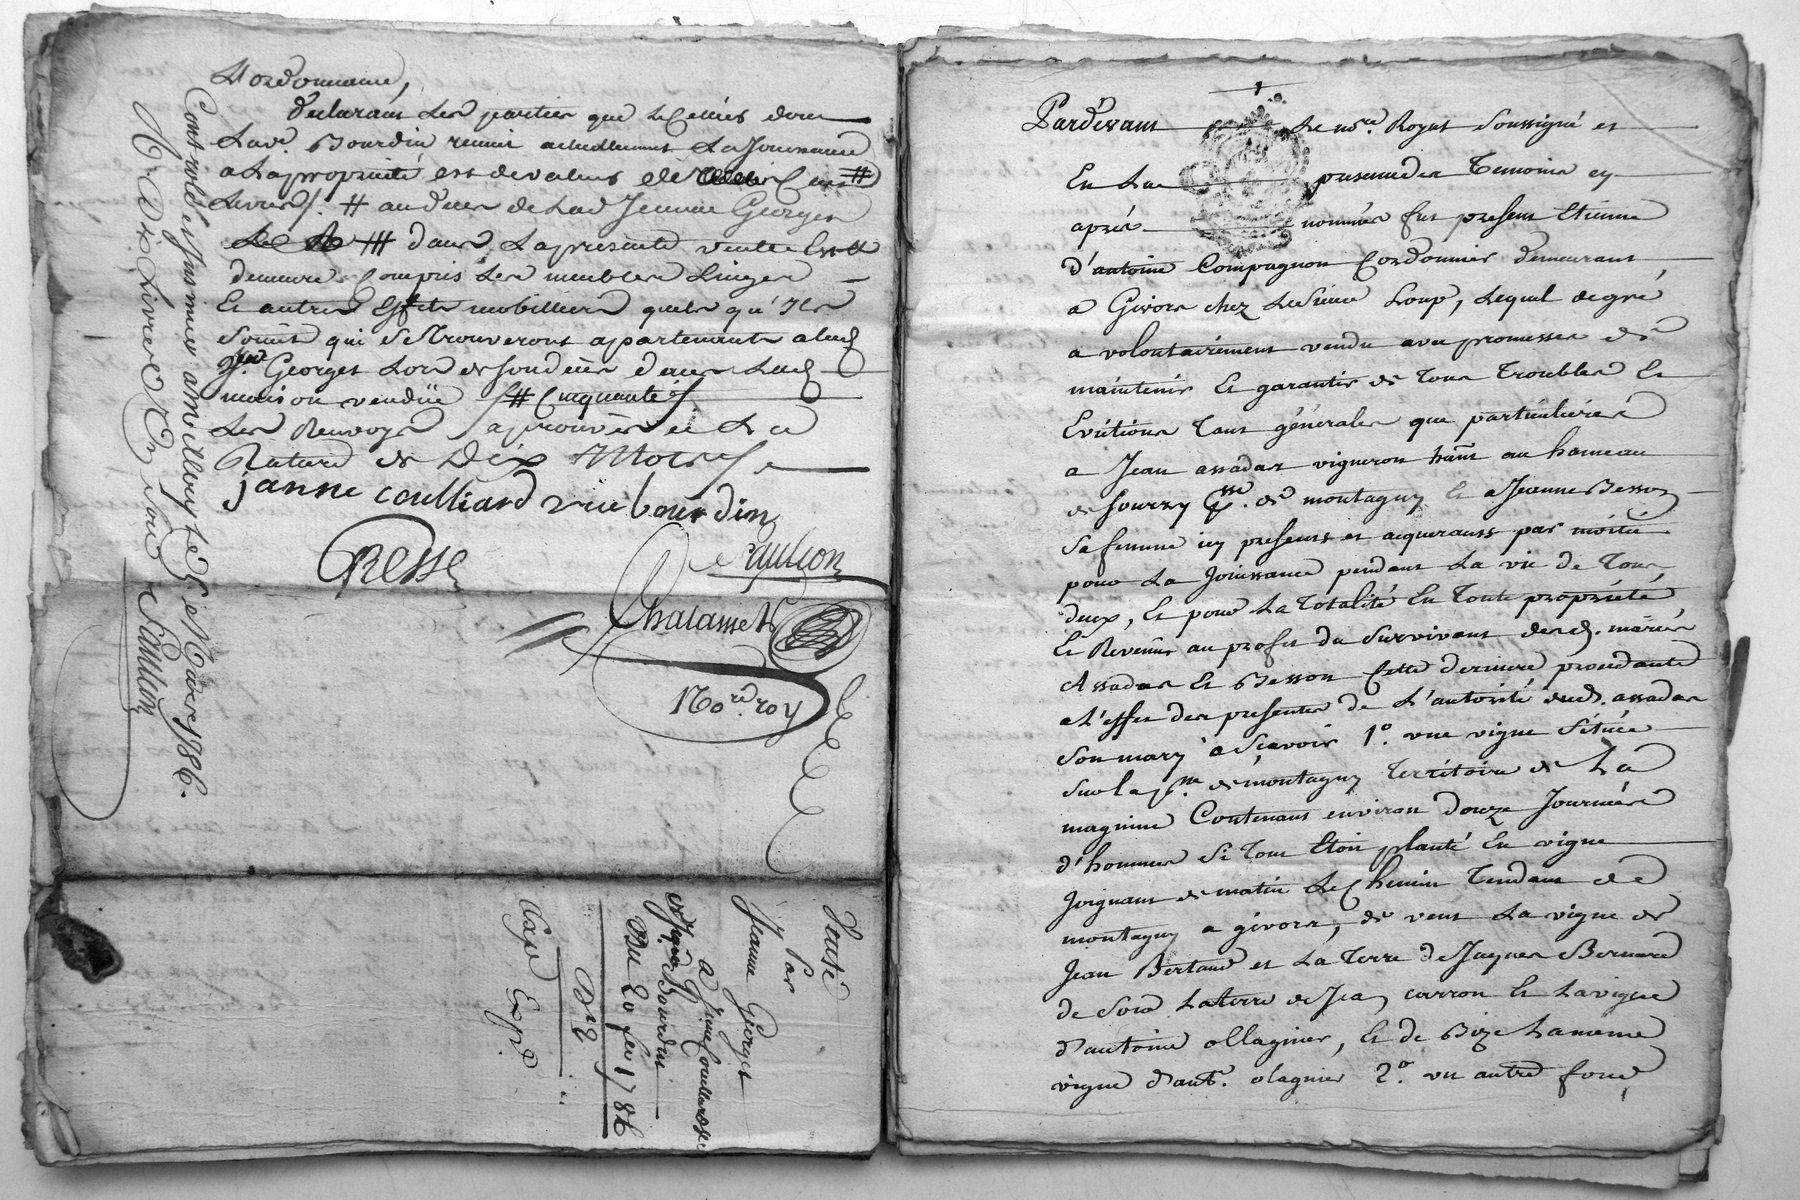 L'ordonnance,
Déclarant les parties que
Lad. Bourdin reunit actuellement La Jouissance
a La proprieté est de valeur de
Livres /. # au deces de Lad Jeanne Georges
# dans La presente vente
demeure Compris Les meubles Linges
Et autres Effets mobilliers quels qu'Ils
soient qui se trouveront apartenants a lad
Georges Lors de son deces dans Lad
maison vendüe /# Cinquante /.
Les Renvoys aprouvés et La
Rature de Dix Mots /.
janne coulliard bourdin
Presse
Chalamet
No.re roy
Controlé et Insinué a Mars 1786.
Dix Livres
Vente
Par
Jeanne Georges
a
Bourdin
Du 20 fev 1786
Exp.é
Pardevant Le no.re Royal Soussigné et
En La presence des Temoins cy
aprés nommés fut present Etienne
d'antoine Compagnon Cordonnier demeurant
a Givors chez Le Sieur Loup, Lequel de gré
a volontairement vendu avec promesse de
maintenir Et garantir de Tous Troubles Et
Evictions Tant générales que particulieres
a Jean assadas vigneron hant au hameau
de sourzy p.sse de montagny Et a Jeanne Besson
Sa femme icy presents et acquerants par moitié
pour La Jouissance pendant La vie de Tous
deux, Et pour La Totalité En Toute proprieté
Et Revenus au profit du Survivant desd. mariés
Assadas Et Besson Cette derniere procedante
a L'effet des presentes de L'autorité dud. assadas
Son mary a Scavoir 1.° une vigne Située
Sur la p.sse de montagny Territoire de La
magnine Contenant environ douze Journées
d'hommes Si Tout Etoit planté En vigne
Joignant de matin Le Chemin Tendant de
montagny a givors, de vent La vigne de
Jean Bertaud et La Terre de Jaques Bernard
de Soir La terre de Jean carron Et La vigne
d'antoine ollagnier, Et de Bize La meme
vigne d'ant.e olagnier 2.° un autre fond